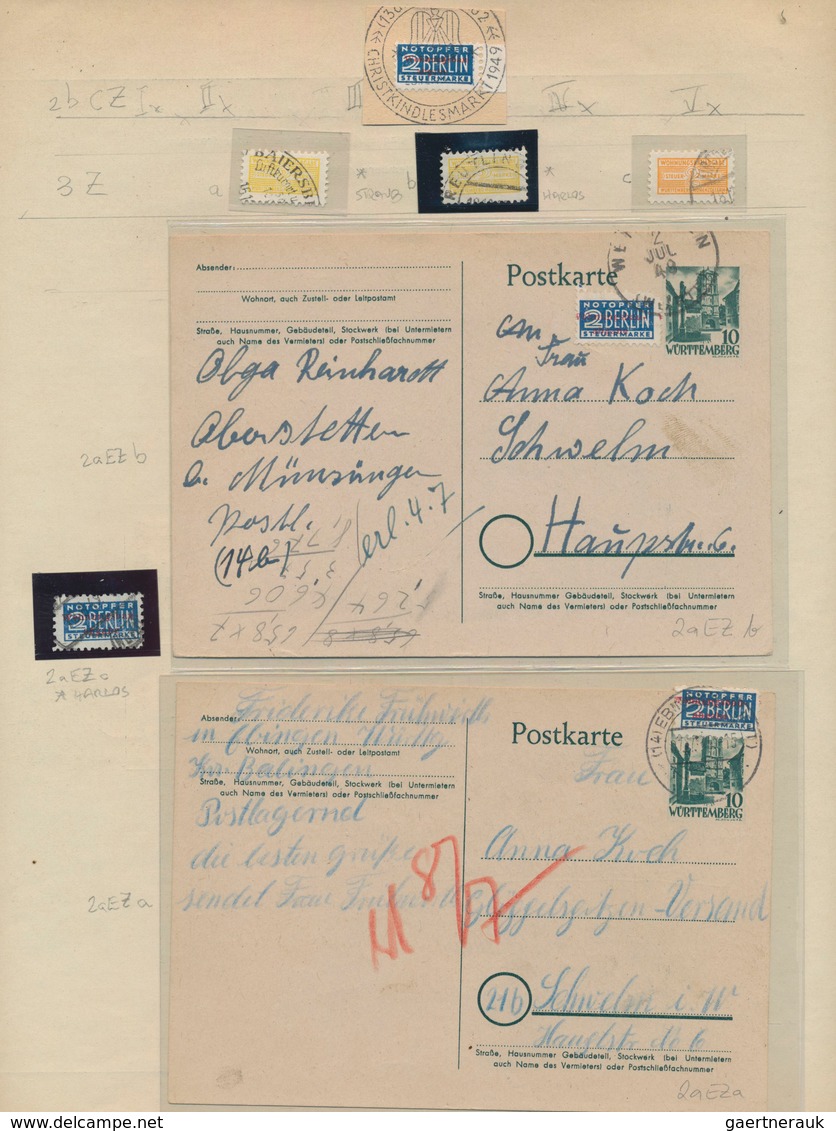 NOTOPFER
2 BERLIN
STEUERMARKE
CHRISTKINDLESMARKT 1949
2b CZ Ix IIx III IVx Vx
3 Z a * b * c
STRAUB HARLOS
BAIERSB
Luftkurort
REUTLIN
WOHNUNGSBAU
Absender:
Wohnort, auch Zustell- oder Leitpostamt
Straße, Hausnummer, Gebäudeteil, Stockwerk (bei Untermietern
auch Name des Vermieters) oder Postschließfachnummer
Olga Reinhardt
Oberstetten
b. Münsingen
postl.
(14b)
erl. 4.7
Postkarte
2
JUL
49
NOTOPFER
2 BERLIN
STEUERMARKE
10
WÜRTTEMBERG
An
Frau
Anna Koch
Schwelm
Hauptstr. 6.
Straße, Hausnummer, Gebäudeteil, Stockwerk (bei Untermietern
auch Name des Vermieters) oder Postschließfachnummer
2aEZ b
2aEZ b
NOTOPFER
2 BERLIN
STEUERMARKE
2aEZ c
* HARLOS
Absender: Friederike
in Ebingen Württbg
Wohnort, auch Zustell- oder Leitpostamt
Kr. Balingen
Straße, Hausnummer, Gebäudeteil, Stockwerk (bei Untermietern
auch Name des Vermieters) oder Postschließfachnummer
Postlagernd
die besten Grüße
sendet Frau
Postkarte
NOTOPFER
2 BERLIN
STEUERMARKE
10
WÜRTTEMBERG
Frau
Anna Koch
Versand
21b Schwelm i. W
Hauptstr. No 6
Straße, Hausnummer, Gebäudeteil, Stockwerk (bei Untermietern
auch Name des Vermieters) oder Postschließfachnummer
2aEZ a
2aEZa
gaertnerauk